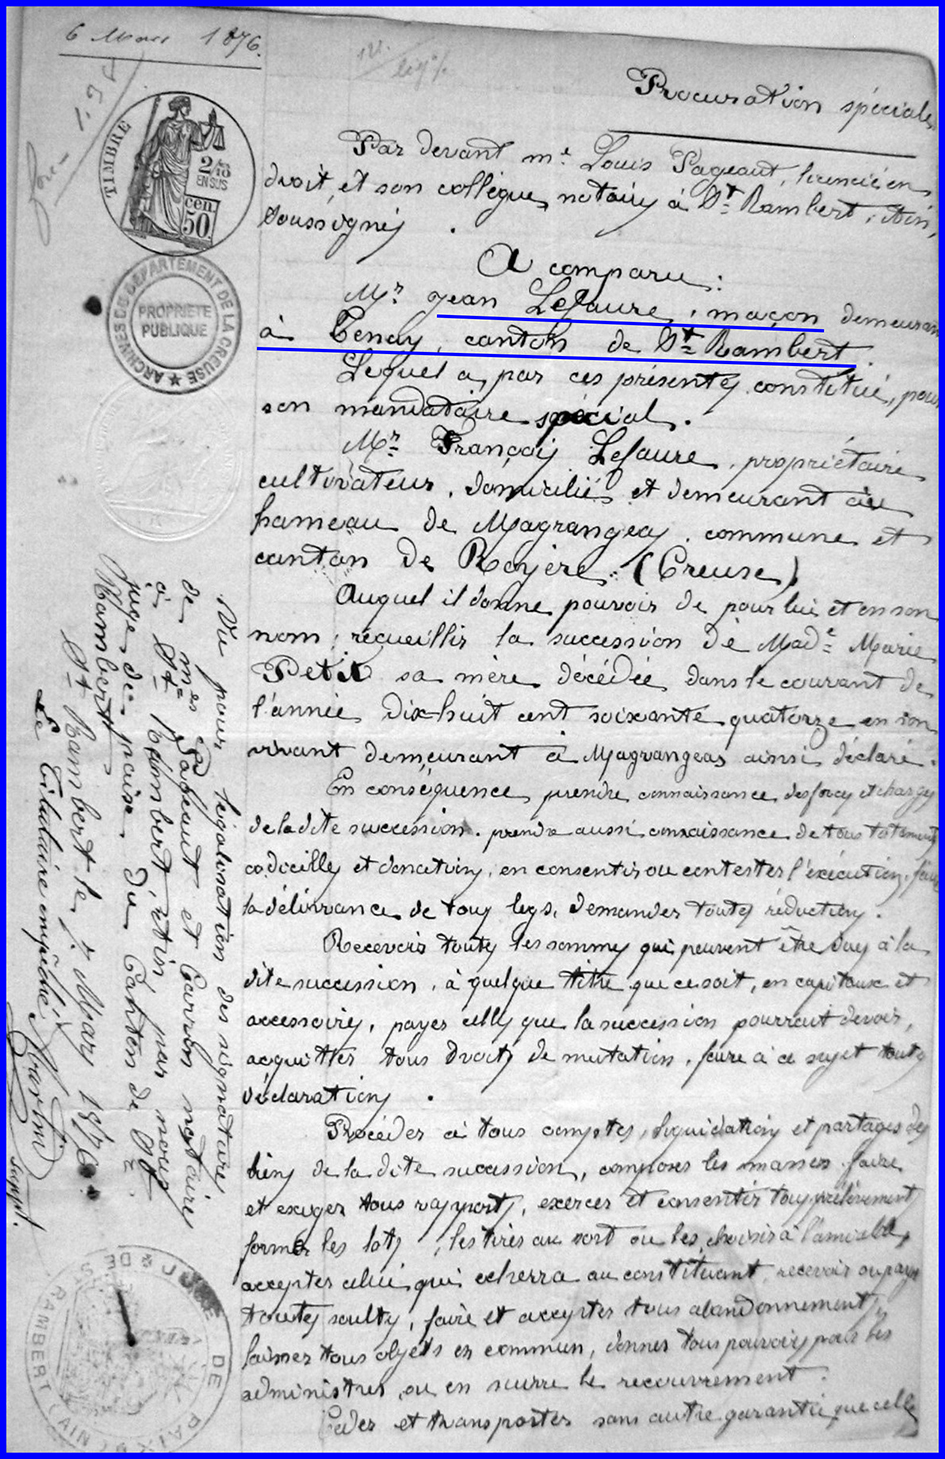 6 Mars 1876.
Procuration spéciale
TIMBRE
2/10
EN SUS
cen
50
ARCHIVES DU DEPARTEMENT DE LA CREUSE
PROPRIETE
PUBLIQUE
Par devant me. Louis Pageaut, licencié en
droit, et son collègue, notaires à St. Rambert, Ain,
soussignés.
A comparu:
Mr. Jean Lefaure, maçon demeurant
à Tenay, canton de St. Rambert.
Lequel a, par ces présentes constitué, pour
son mandataire spécial.
Mr. François Lefaure, propriétaire
cultivateur, domicilié et demeurant au
hameau de Magrangeas, commune et
canton de Royère. (Creuse)
Auquel il donne pouvoir de pour lui et en son
nom, recueillir la succession de Made. Marie
Petit sa mère décédée dans le courant de
l'année dix-huit cent soixante quatorze en son
vivant demeurant à Magrangeas ainsi déclaré.
En conséquence, prendre connaissance des forces et charges
de la dite succession. prendre aussi connaissance de tous testaments
codicilles et donations, en consentir ou contester l'exécution, faire
la délivrance de tous legs, demander toutes réductions.
Recevoir toutes les sommes qui peuvent être dues à la
dite succession, à quelque titre que ce soit, en capitaux et
accessoires, payer celles que la succession pourrait devoir,
acquitter tous droits de mutation, faire à ce sujet toutes
déclarations.
Procéder à tous comptes, liquidations et partages des
biens de la dite succession, composer les masses, faire
et exiger tous rapports, exercer et consentir tous prélèvements
former les lots, les tirer au sort ou les choisir à l'amiable,
accepter celui qui écherra au constituant, recevoir ou payer
toutes soultes, faire et accepter tous abandonnements,
laisser tous objets en commun, donner tous pouvoirs pour les
administrer, ou en suivre le recouvrement.
Céder et transporter sans autre garantie que celle
Vu pour légalisation des signatures
de mes Pageaut et Carron notaires
à St. Rambert, Ain, par nous
juge de paix du Canton de St.
Rambert
St. Rambert le 7 Mars 1876
Le Titulaire empêché
suppt.
JUGE DE PAIX DE ST RAMBERT (AIN)